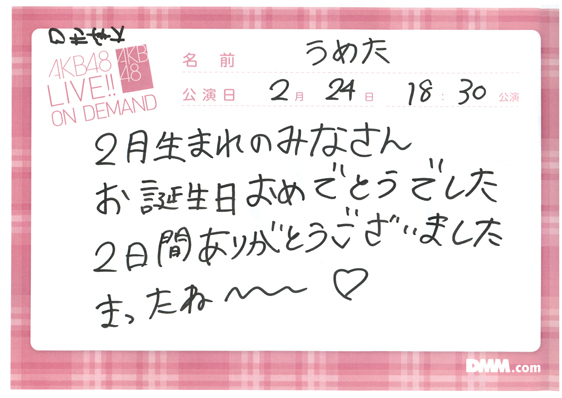 AKB48
LIVE!!
ON DEMAND
AKB
48
名前 うめた
公演日 2月 24日 18:30公演
2月生まれのみなさん
お誕生日おめでとうでした
2日間ありがとうございました
まったね〜〜〜 ♡
DMM.com